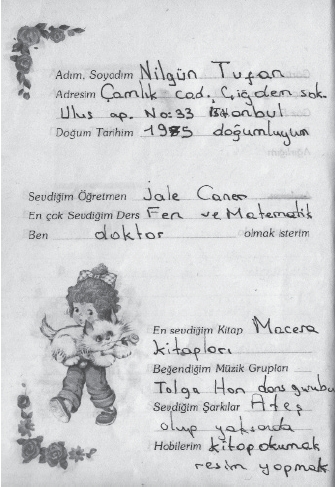 Adım, Soyadım Nilgün Tufan
Adresim Çamlık cad. Çiğdem sok.
Ulus ap. No:33 İstanbul
Doğum Tarihim 1985 doğumluyum
Sevdiğim Öğretmen Jale Caner
En çok Sevdiğim Ders Fen ve Matematik
Ben doktor olmak isterim
En sevdiğim Kitap Macera
kitapları
Beğendiğim Müzik Grupları
Tolga Han dans gurubu
Sevdiğim Şarkılar Ateş
olup yaksanda
Hobilerim kitap okumak
resim yapmak